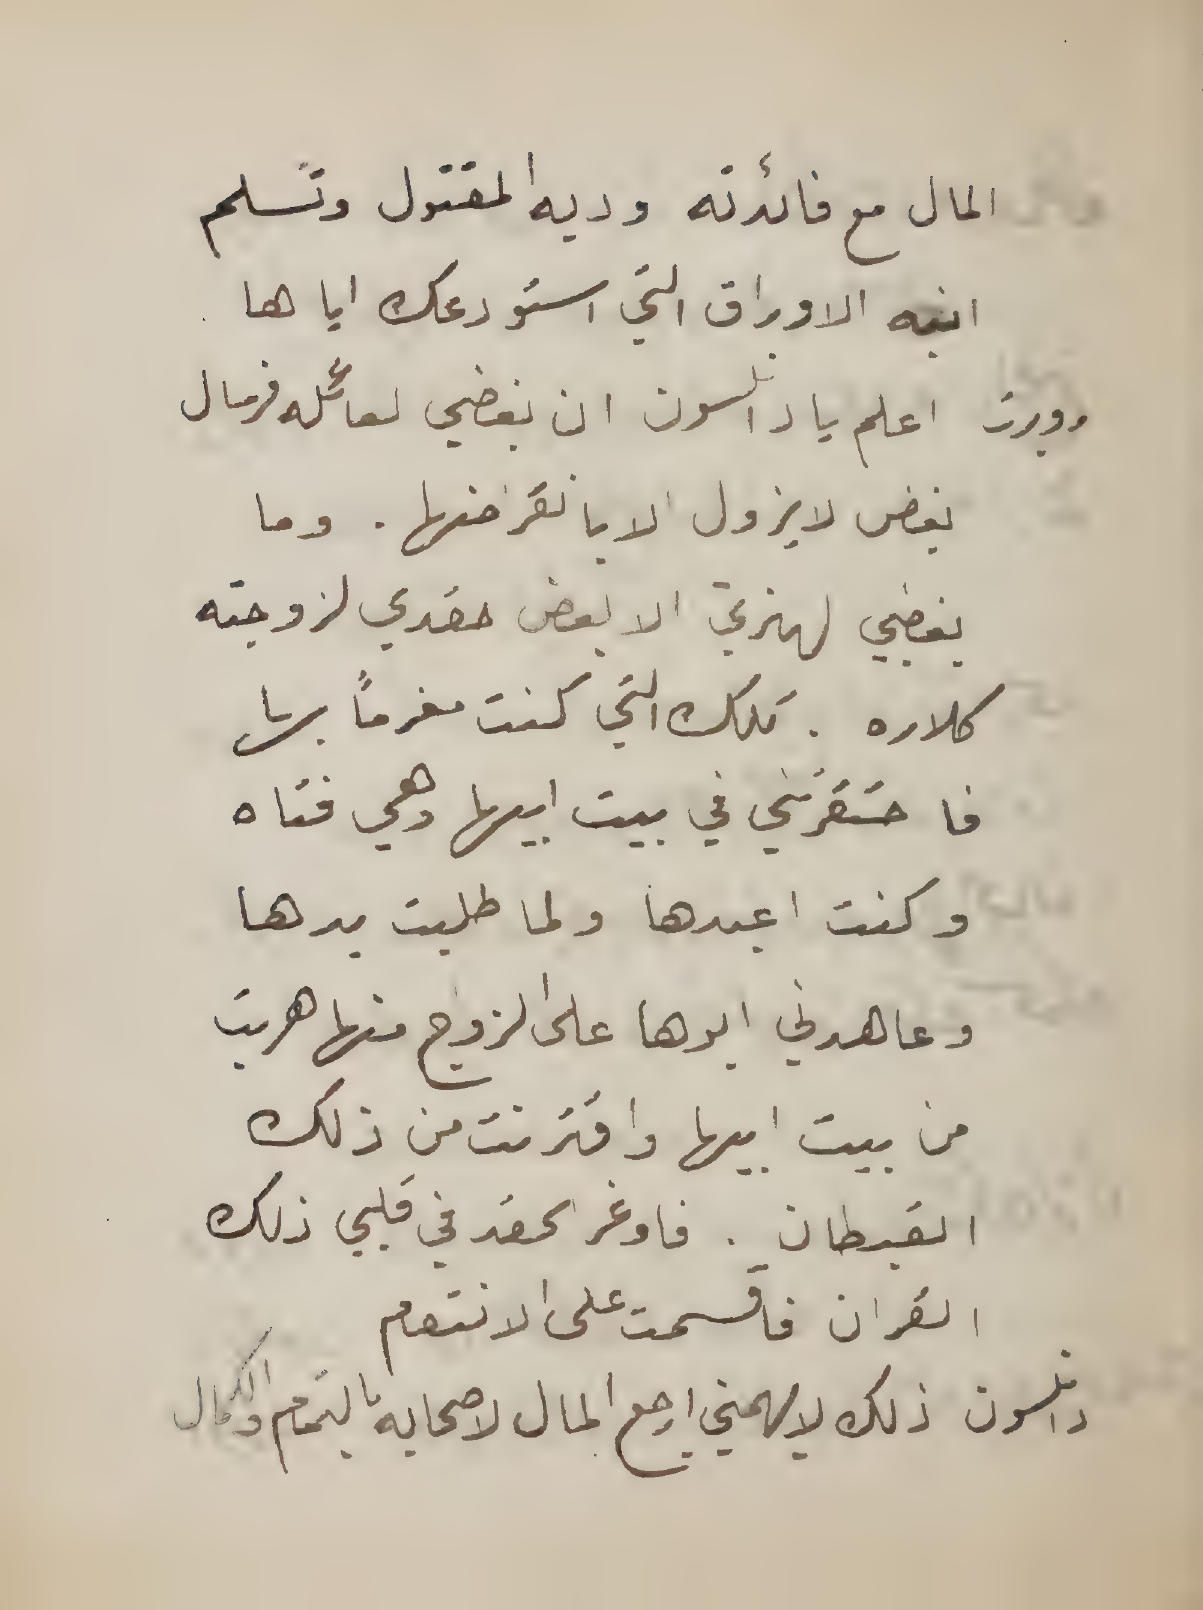 المال مع فائدته وديه المقتول وتسلم
ابنه الاوراق التي استودعك اياها
روبرت اعلم يا دانلسون ان بغضي لعائله فرمال
بغض لا يزول الا بانقراضها . وما
بغضي لهنري الا بعض حقدي لزوجته
كلاره . تلك التي كنت مغرماً بها
فاحتقرتني في بيت ابيها وهي فتاه
وكنت اعبدها ولما طلبت يدها
وعاهدني ابوها على الزواج منها هربت
من بيت ابيها واقترنت من ذلك
القبطان . فاوغر الحقد في قلبي ذلك
القران فاقسمت على الانتقام
دانلسون ذلك لا يهمني ارجع المال لاصحابه بالتمام والكمال